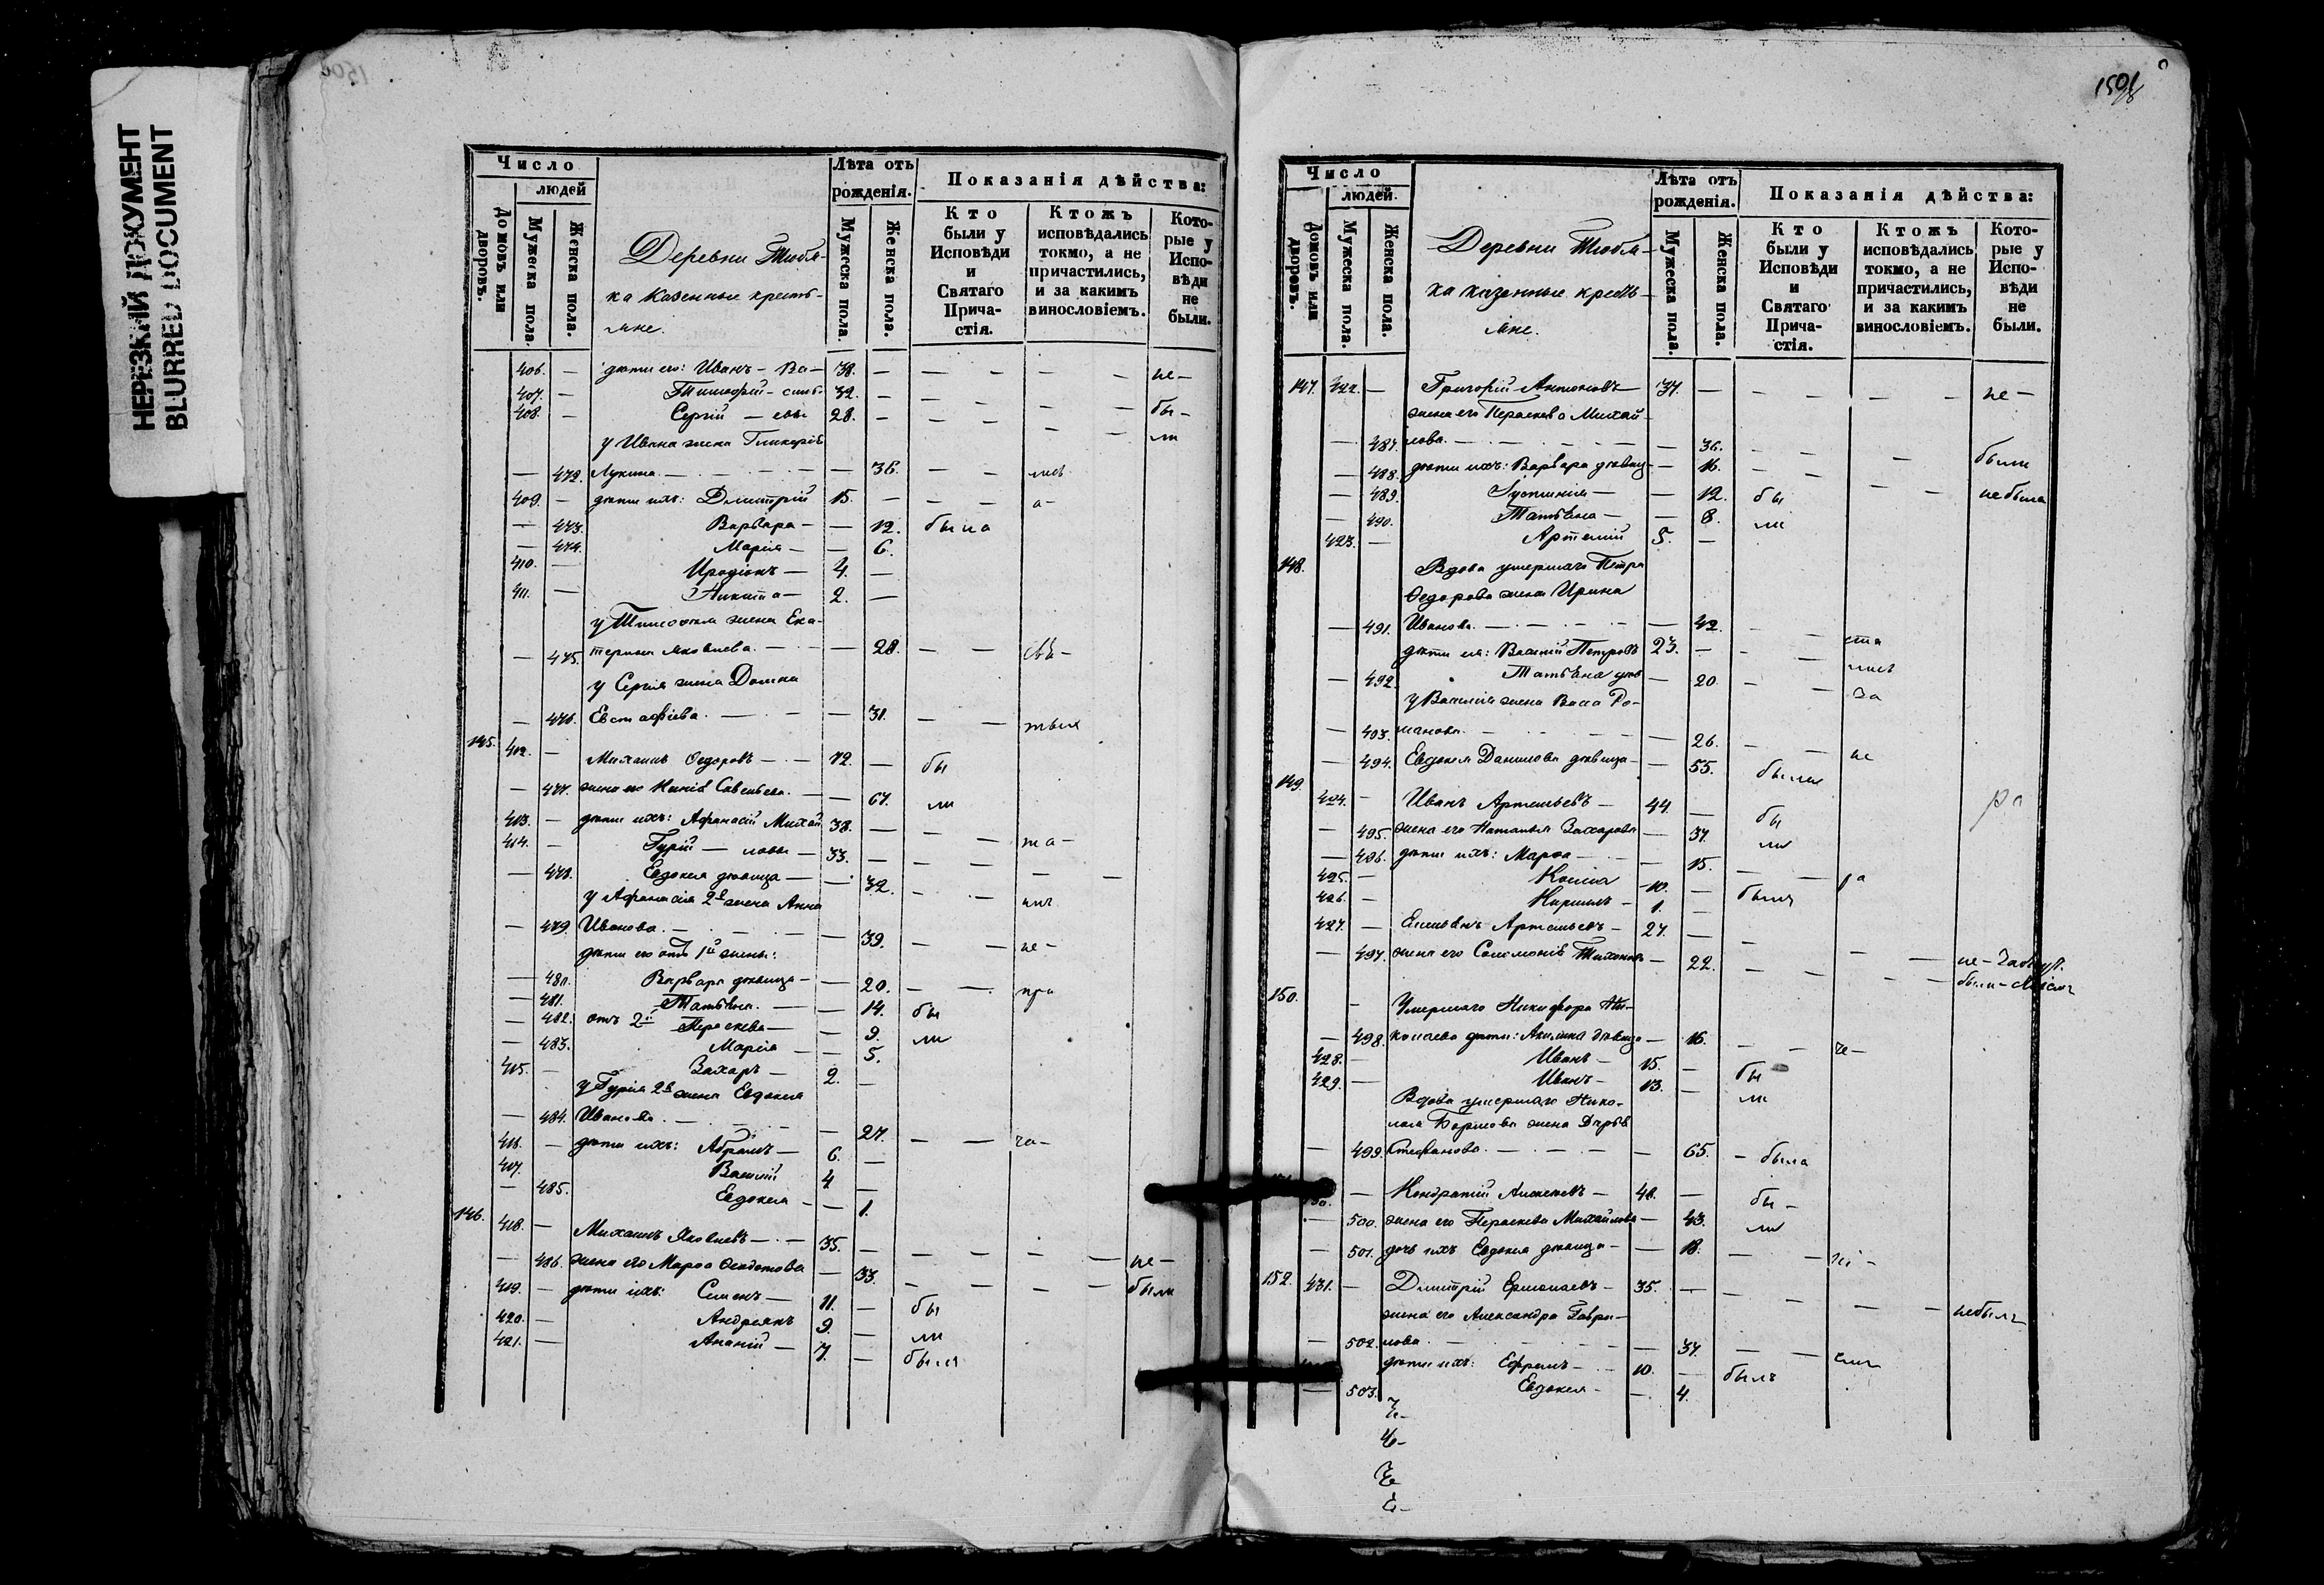 НЕРЕЗКИЙ ДОКУМЕНТ
BLURRED DOCUMENT
Число
людей
Домовъ или дворовъ.
Мужеска пола.
Женска пола.
Лѣта отъ рожденія.
Мужеска пола.
Женска пола.
Показанія дѣйства:
Кто были у Исповѣди и Святаго Прича-стія.
Ктожъ исповѣдались токмо, а не причастились, и за какимъ винословіемъ.
Кото-рые у Испо-вѣди не были.
Деревни
ка казенные кресть-
яне.
406. — дѣти его: Иванъ — 38. — не —
407. — Тимофей — 32. —
408. — Сергій — евы 28. — бы —
у Ивана жена Гликерія ли
— 472. Лукина — 36.
409. — дѣти ихъ: Димитрій 15. — а —
— 473. Варвара — 12. была
— 474. Марія — 6.
410. — Иродіонъ — 4. —
411. — Никита — 2. —
у Тимофея жена Ека-
— 475. терина Яковлева — 28.
у Сергія жена Домна
— 476. Евстафіева — 31.
145. 412. — Михаилъ Ѳедоровъ — 72. — бы
— 477. жена его Савельева — 67. ли
413. — дѣти ихъ: Афанасій Михай 38. —
414. — Гурій — ловы — 33. —
— 478. Евдокія дѣвица — 32.
у Афанасія 2я жена Анна
— 479. Иванова — 39. — не —
дѣти его отъ 1й жены:
— 480. Варвара дѣвица — 20. при
— 481. Татьяна — 14. бы
— 482. отъ 2й Параскева — 9. ли
— 483. Марія — 5.
415. — Захаръ — 2. —
у Гурія 2я жена Евдокія
— 484. Иванова — 27. — ча —
416. — дѣти ихъ: Абрамъ — 6. —
417. Василій 4 —
— 485. Евдокія — 1.
146. 418. — Михаилъ Яковлевъ — 35. — не —
— 486. жена его Марѳа Ѳеодотова — 33. были
419. — дѣти ихъ: Семенъ — 11. — бы
420. — Андреянъ 9. — ли
421. — Ананій — 7. — были
Число
людей.
Домовъ или дворовъ.
Мужеска пола.
Женска пола.
Лѣта отъ рожденія.
Мужеска пола.
Женска пола.
Показанія дѣйства:
Кто были у Исповѣди и Святаго Прича-стія.
Ктожъ исповѣдались токмо, а не причастились, и за какимъ винословіемъ.
Кото-рые у Испо-вѣди не были.
Деревни
ка казенные кресть-
яне.
147. 422. — Григорій Антоновъ — 37. — не —
жена его Параскева Михай-
— 487. лова — 36. были
— 488. дѣти ихъ: Варвара дѣвица — 16.
— 489. Іустинія — 12. бы не была
— 490. Татьяна — 8. ли
423. — Артемій 5. —
148. Вдова умершаго Петра
Ѳедорова жена Ирина
— 491. Иванова — 42.
дѣти ея: Василій Петровъ 23. —
— 492. Татьяна — 20.
у Василія жена Васса Ро-
— 493. манова — 26.
— 494. Евдокія Данилова дѣвица — 55.
149. 424. — Иванъ Артемьевъ — 44. — бы
— 495. жена его Наталья Захарова — 37. ли
— 496. дѣти ихъ: Марѳа — 15.
425. — Косма 10. — былъ
426. — Кириллъ — 1. —
427. — Емельянъ Артемьевъ — 27. —
— 497. жена его Соломонія Тихонова — 22. не —
были —
150. — Умершаго Никифора Ни-
— 498. колаева дѣти: Акилина дѣвица — 16.
428. — Иванъ — 15. — бы
429. — Иванъ — 13. — ли
Вдова умершаго Нико-
лая Борисова жена Дарья
— 499. Стефанова — 65. — была
— Кондратій Алексеевъ — 48. — бы —
— 500. жена его Параскева Михайлова — 43. ли
— 501. дочь ихъ Евдокія дѣвица — 18.
152. 431. — Димитрій Ермолаевъ — 35. — не былъ
жена его Александра Гаври-
— 502. лова — 37.
дѣти ихъ: Ефремъ — 10. — былъ
— 503. Евдокія — 4.